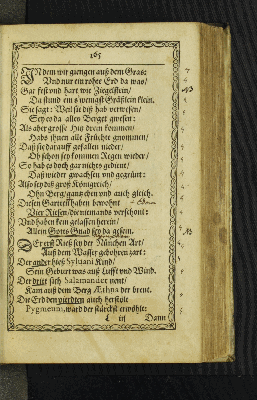 165
INdem wir giengen auß dem Gras:
Vnd nur ein roher Erd da was/
Gar fest vnd hart wie Ziegelstein/
Da stund ein wenigst Gräßlein klein.
Sie sagt: Weil sie diß hab verwesen/
Sey es da alles Berget gwesen:
Als aber grosse Hitz drein kommen/
Habs ihnen alle Frücht genommen/
Daß sie darauff gefallen nieder/
Ob schon sey kommen Regen wieder/
So hab es doch gar nichts gedient/
Daß wieder gwachsen vnd gegrünt:
Also sey diß groß Königreich/
Ohn Berg/ gantz eben vnd auch gleich.
Diesen Garten haben bewohnt
Vier Riesen/ die niemands verschont:
Vnd haben kein gelassen herein/
Allein Gotts Gnad sey da gesein.
Der erst Rieß sey der Nünchen Art/
Auß dem Wasser gebohren zart:
Der ander hieß Sylvani Kind/
Sein Geburt was auß Lufft vnd Wind.
Der dritt sich Salamander nent/
Kam auß dem Berg Æthna der brent.
Die Erd den vierdten auch herfür
Pygmeum, ward der stärckst erwöhlt:
L iii Dann